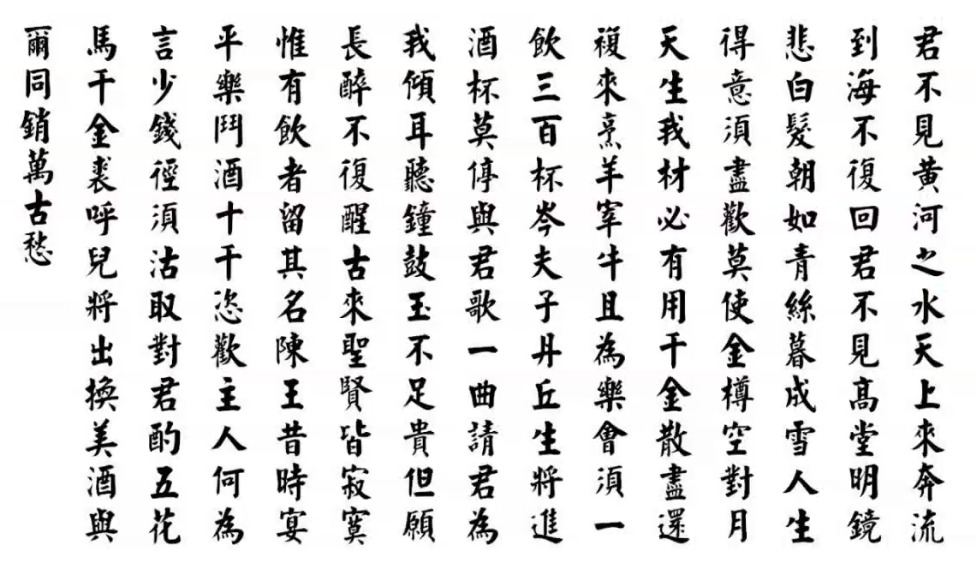 君不見黄河之水天上來奔流
到海不復回君不見高堂明鏡
悲白髮朝如青絲暮成雪人生
得意須盡歡莫使金樽空對月
天生我材必有用千金散盡還
複來烹羊宰牛且為樂會須一
飲三百杯岑夫子丹丘生將進
酒杯莫停與君歌一曲請君為
我傾耳聽鐘鼓玉不足貴但願
長醉不復醒古來聖賢皆寂寞
惟有飲者留其名陳王昔時宴
平樂鬥酒十千恣歡主人何為
言少錢徑須沽取對君酌五花
馬千金裘呼兒將出換美酒與
爾同銷萬古愁